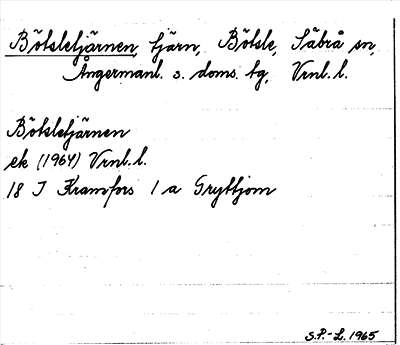 Bötsletjärnen, tjärn, Bötsle, Säbrå sn,
Ångermanl. s. doms. tg, Vrnl. l.
Bötsletjärnen
ek (1964) Vrnl. l.
18 I Kramfors 1 a Gryttjom
S.P.-L. 1965